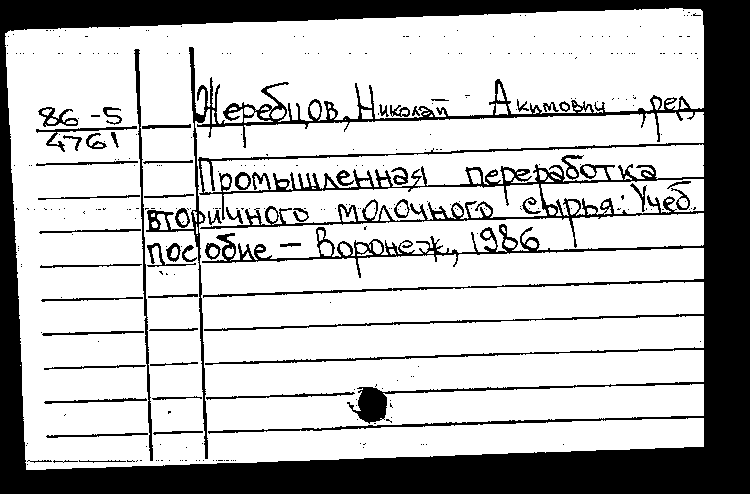 86-5
4761
Жеребцов, Николай Акимович, ред.
Промышленная переработка
вторичного молочного сырья: Учеб.
пособие - Воронеж, 1986.